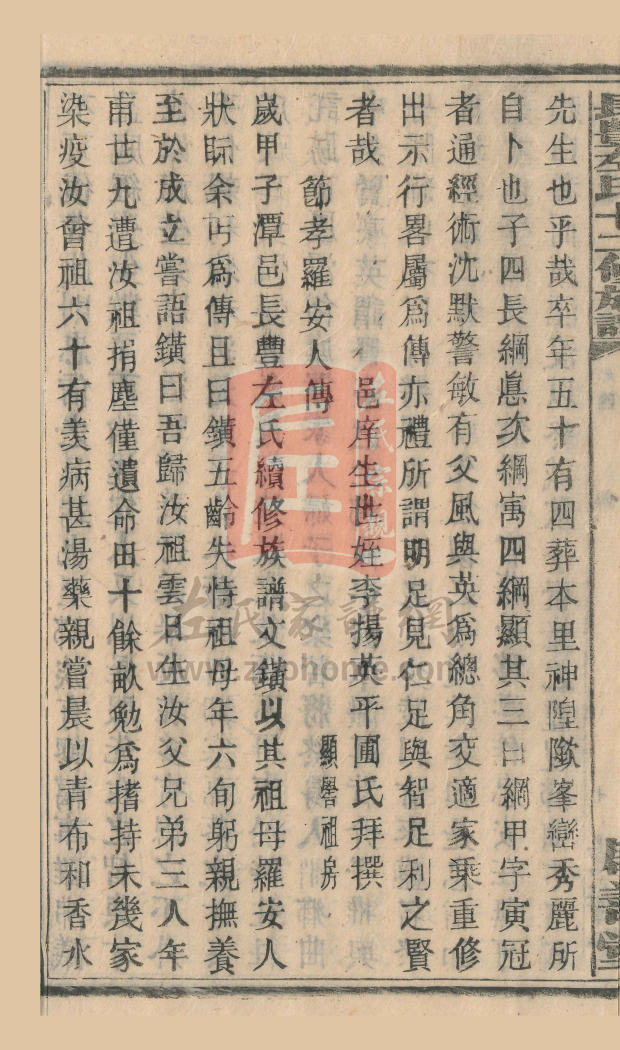 長豐左氏十二修族譜
先生也乎哉卒年五十有四葬本里神隍㠌峯巒秀麗所
自卜也子四長綱眞次綱寓四綱顯其三曰綱甲字寅冠
者通經術沈默警敏有父風與英爲總角交適家乘重修
出示行畧屬爲傳亦禮所謂明足見仁足與智足利之賢
者哉 邑庠生世姪李揚英平圃氏拜撰
節孝羅安人傳 顯譽祖房
歲甲子潭邑長豐左氏續修族譜文鑌以其祖母羅安人
狀眎余丐爲傳且曰鑌五齡失恃祖母年六旬躬親撫養
至於成立嘗語鑌曰吾歸汝祖雲日生汝父兄弟三人年
甫廿九遭汝祖捐塵僅遺命田十餘畝勉爲撐持未幾家
染疫汝曾祖六十有羙病甚湯藥親嘗晨以青布和香水
左氏宗親
左氏家譜網
www.zuophome.com